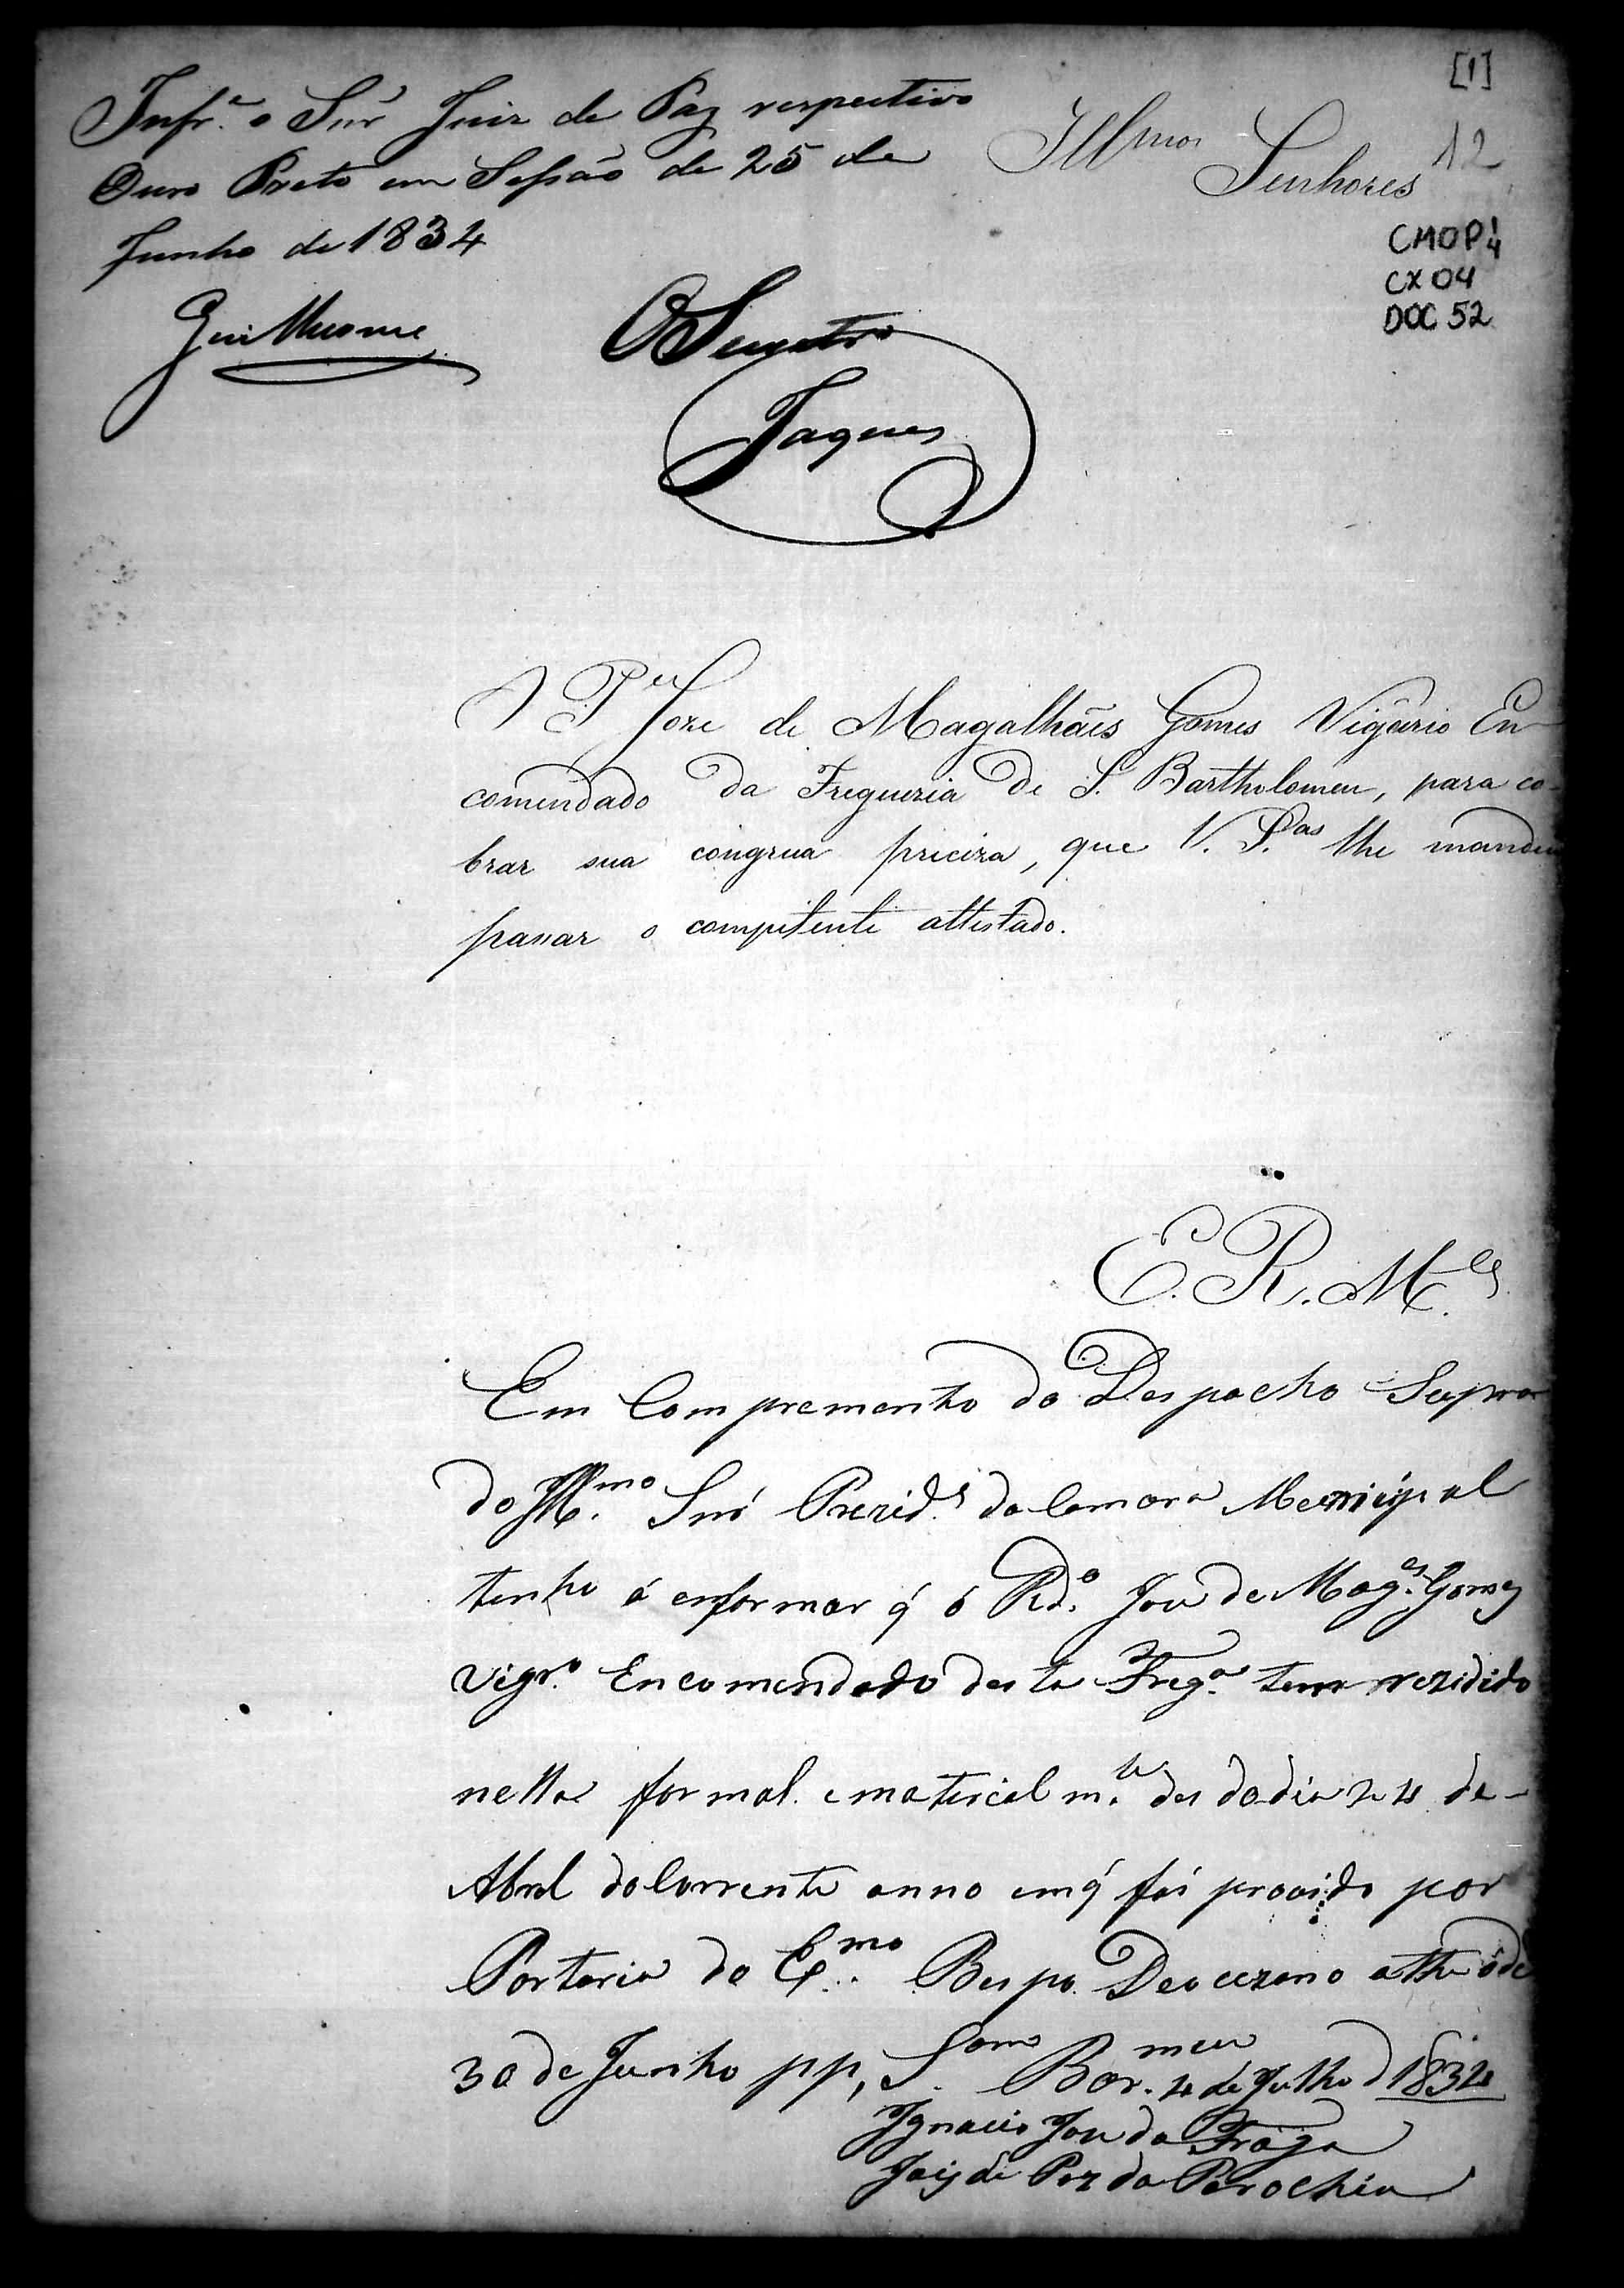 [1]
12
Infr.e o Snr' Juiz de Paz respectivo
Ouro Preto em Sessão de 25 de
Junho de 1834
Guilherme
O Secretro
Jaques
Illmos Senhores
CMOP 1/4
CX 04
DOC 52
O P.e Joze de Magalhães Gomes Vigário En
comendado da Freguezia de S. Bartholomeu, para co-
brar sua congrua preciza, que V. S.as lhe mandem
passar o competente attestado.
E. R. M.ce
Em Compremento do Despacho Supra
do Ill.mo Snr' Prezid.e da Camara Municipal
tenho á enformar q' ó Rd.o Joze de Mag.es Gomes
Vigr.o Encomendado desta Freg.a tem rezidido
nella formal e material m.te des do dia 24 de
Abril do Corrente anno em q' foi provido por
Portaria do E.mo Bespo Deocezano athe ó de
30 de Junho pp, S.am Bar.meu 4 de Julho d 1834
Ignacio Joze da Fraga
Joiz de Paz da Parochia